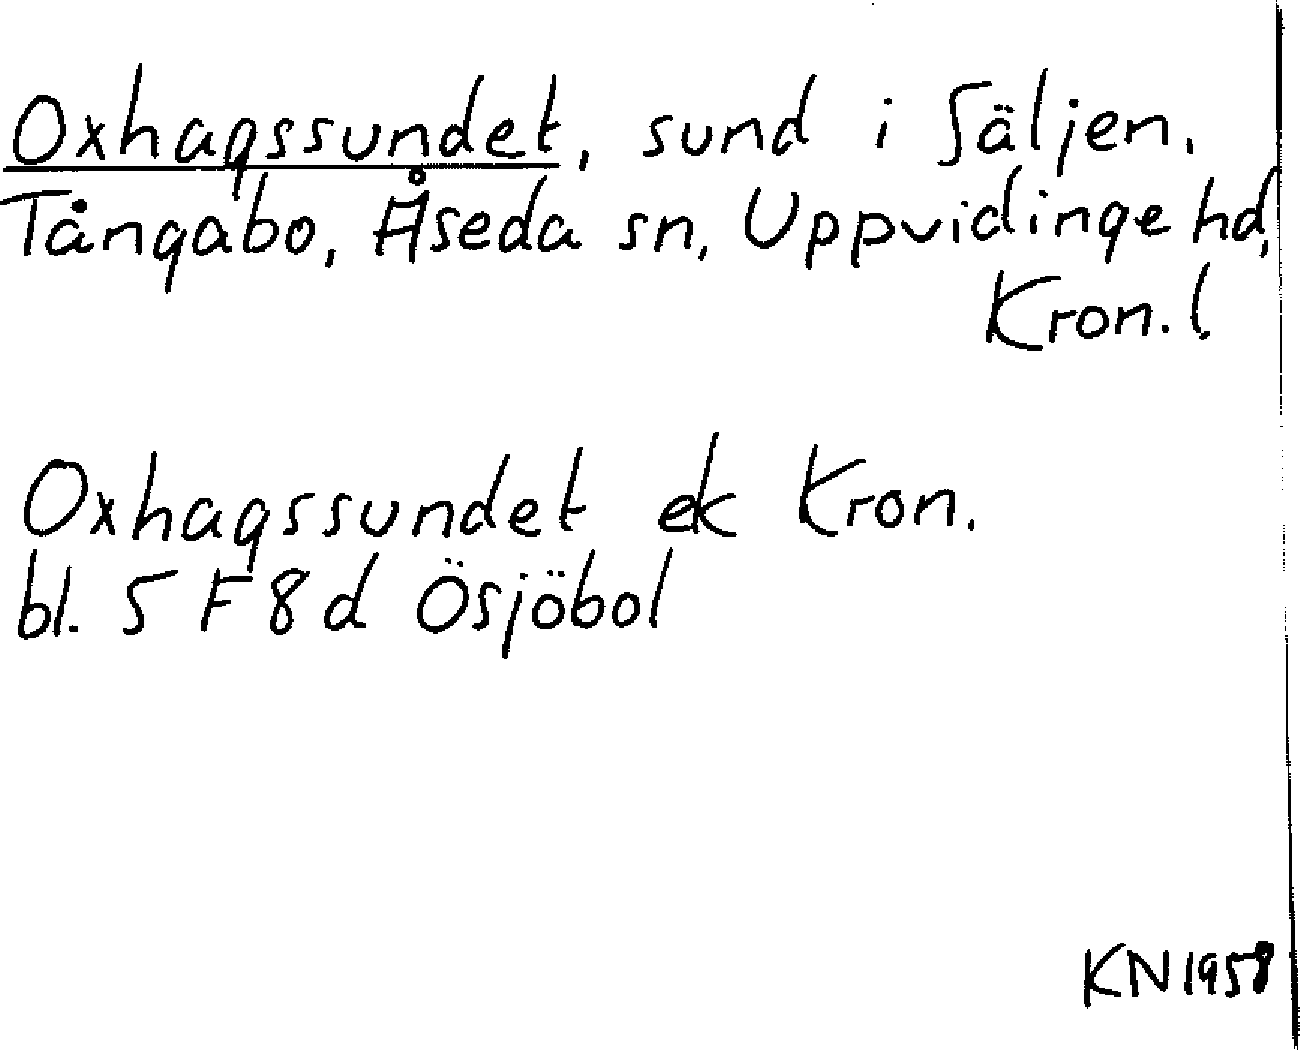 Oxhagssundet, sund i Säljen,
Tångabo, Åseda sn, Uppvidinge hd,
Kron. l
Oxhagssundet ek Kron.
bl. 5 F 8 d Ösjöbol
KN 1958